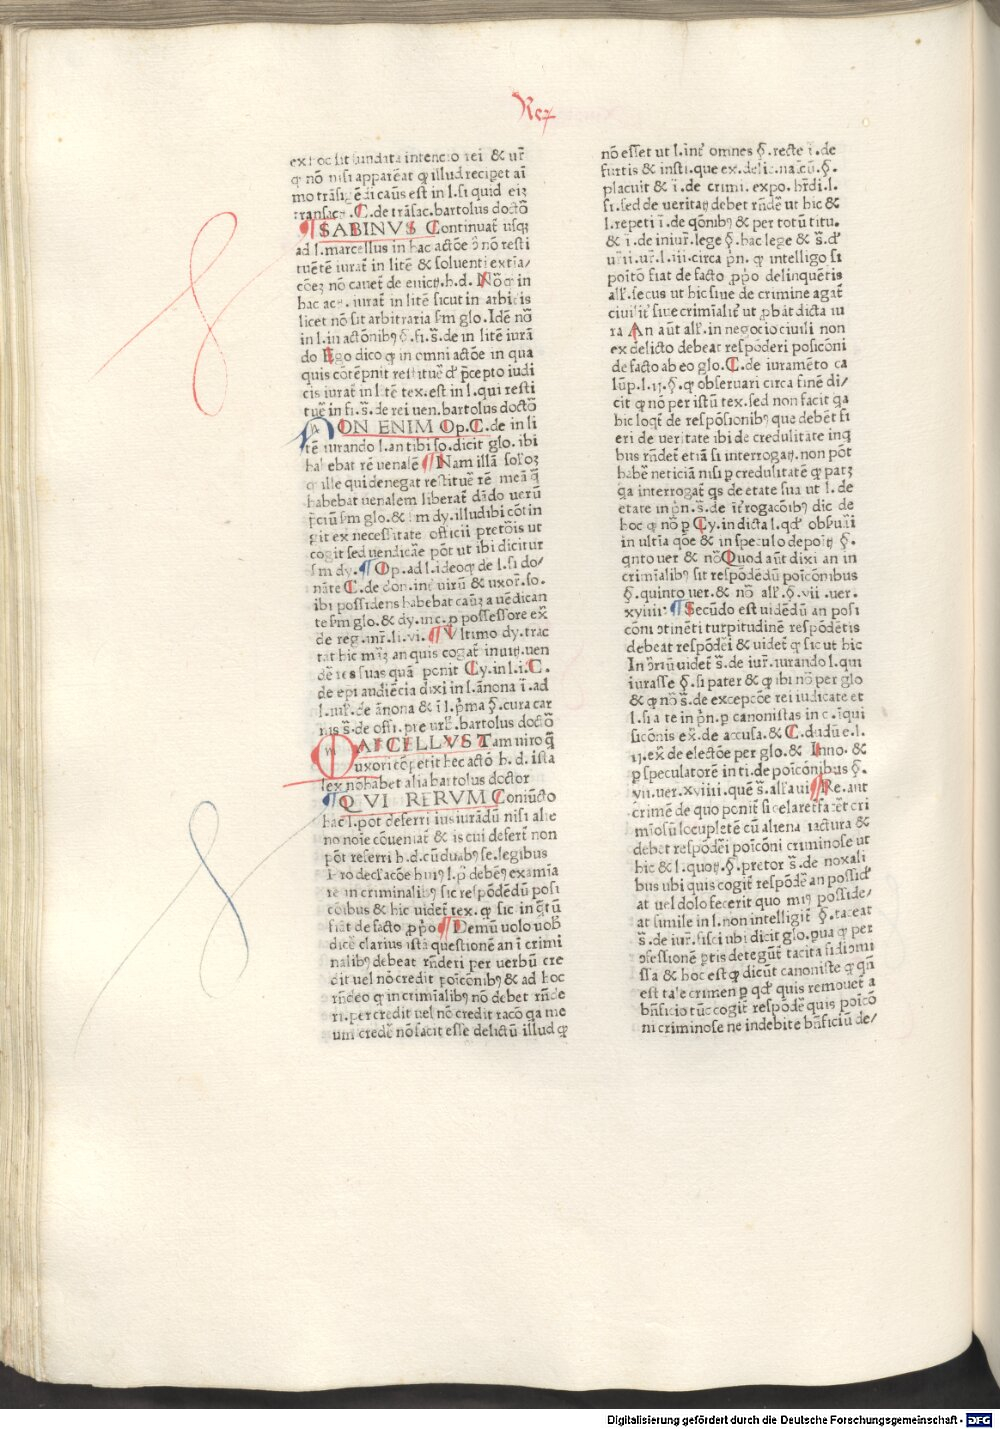 Rex
ex hoc sit fundata intencio rei & ur̄
ꝙ nō nisi appareat ꝙ illud recipet aī
mo trāsigēdi caus̄ est in l. si quid eiꝫ
transact̄. C. de trāsac. bartolus doctō
¶ SABINVS Continuat̄ usqꝫ
ad l. marcellus in hac actōe ↄ̄ nō resti
tuētē iurat̄ in litē & soluenti extīa/
cōeꝫ nō cauet̄ de euict̄. h. d. Nō ꝙ in
hac act. iurat̄ in litē sicut in arbitis
licet nō sit arbitraria s̄m glo. Idē nō
in l. in actōnibꝰ §. fi. s̄. de in litē iurā
do Ego dico ꝙ in omni actōe in qua
quis cōtēpnit restituē̄ d̄ p̄cepto iudi
cis iurat̄ in litē tex. est in l. qui resti
tuē̄ in fi. s̄. de rei uen. bartolus doctō
NON ENIM Op. C. de in li
tē iurando l. an tibi so. dicit glo. ibi
habebat rē uenalē ¶ Nam illā soloꝫ
ꝙ ille qui denegat restituē̄ rē meā ꝗ̄
habebat uenalem liberat̄ dādo uerū
p̄ciū s̄m glo. & s̄m dy. illud ibi cōtin
git ex necessitate officii pretōis ut
cogit̄ sed uendicāe pōt ut ibi dicitur
s̄m dy. ¶ Op. ad l. ideoqꝫ de l. si do/
nāte C. de don. int̄ uirū & uxor̄. so.
ibi possidens habebat caūꝫ a uēdican
te s̄m glo. & dy. inc. ꝓ possessore ex̄
de reg. iur̄. li. vi. ¶ Vltimo dy. trac
tat hic m̄ꝫ an quis cogat̄ inuitꝰ uen
dē̄ res suas quā ponit Cy. in l. i. C.
de epi audiēcia dixi in l. ānona ī. ad
l. iul̄. de ānona & ī l. p̄ma §. cura car
nis s̄. de offi. pre urb̄. bartolus doctō
MARCELLVS Tam uiro ꝗ̄
uxori cōpetit hec actō h. d. ista
lex nō habet alia bartolus doctor
¶ QVI RERVM Coniūcto
hac l. pōt deferri iusiurādū nisi alie
no noīe cōueniat̄ & is cui defert̄ non
pōt referri h. d. cū duabꝰ se. legibus
Pro declacōe huiꝰ l. ꝓ̄ debēꝰ examīa
re in criminalibꝰ sic respōdēdū posi
cōibus & hic uidet̄ tex. ꝙ sic in ꝗ̄tū
fiat de facto ꝓp̄o ¶ Demū uolo uob̄
dicē̄ clarius istā questionē an ī crimi
nalibꝰ debeat rn̄deri per uerbū cre
dit uel nō credit poīcōnibꝰ & ad hoc
rn̄deo ꝙ in crimīalibꝰ nō debet rn̄de
ri. per credit uel nō credit racō ꝗa me
um credē̄ nō facit esse delictū illud ꝙ
nō esset ut l. int̄ omnes §. recte ī. de
furtis & insti. que ex. delic. na. cū. §.
placuit & ī. de crimi. expo. hr̄di. l.
si. sed de ueritate debet rn̄dē̄ ut hic &
l. repeti ī. de qōnibꝰ & per totū titu.
& ī. de iniur̄. lege §. hac lege & s̄. d̄
ur̄ii. ur̄. l. iii. circa p̄n. ꝙ intelligo si
poītō fiat de facto ꝓp̄o delinquētis
al̄r. secus ut hic siue de crimine agat̄
ciuilit̄ siue crimīalit̄ ut ꝓbāt dicta iu
ra An aūt al̄r. in negocio ciuili non
ex delicto debeat respōderi posicōni
de facto ab eo glo. C. de iuramēto ca
lūp. l. ii. §. ꝙ obseruari circa finē di/
cit ꝙ nō per istū tex. sed non facit ꝗa
hic loqt̄ de respōsionibꝰ que debēt fi
eri de ueritate ibi de credulitate inqꝰ
bus rn̄det̄ etiā si interrogatꝰ. non pōt
habē̄ neticiā nisi ꝑ credulitatē ꝙ patꝫ
ꝗa interrogat̄ qs de etate sua ut l. de
etate in p̄n. s̄. de it̄rogacōibꝰ dic de
hoc ꝙ nō ꝑ Cy. in dicta l. qd̄ obs̄uari
in ultīa qōe & in speculo de poītꝰ §.
qnto uer & nō Quod aūt dixi an in
crimīalibꝰ sit respōdēdū poīcōnibus
§. quinto uer. & nō al̄r. §. vii. uer.
xviiii: ¶ Secūdo est uidēdū an posi
cōni ↄtinēti turpitudinē respōdētis
debeat respōdēi & uidet̄ ꝙ sic ut hic
In ↄ̄riū uidet̄ s̄. de iur̄. iurando l. qui
iurasse §. si pater & ꝙ ibi nō per glo
& ꝙ nō s̄. de excepcōe rei iudicate et
l. si a te in p̄n. ꝑ canonistas in c. īqui
sicōnis ex̄. de accusa. & C. dudū e. l.
ii. ex̄ de electōe per glo. & Inno. &
ꝑ speculatorē in ti. de poīcōnibus §.
vii. uer. xviiii. quē s̄. al̄aui ¶ Re. aut
crimē de quo ponit̄ si celaret̄ fa cēt cri
miosū locupletē cū aliena iactura &
debet respōdēi poīcōni criminose ut
hic & l. quotꝰ. §. pretor s̄. de noxali
bus ubi quis cogit̄ respōdē̄ an possid̄
at uel dolo fecerit quo miꝰ posside/
at simile in l. non intelligit̄ §. taceat
s̄. de iur̄. fisci ubi dicit glo. ꝓua ꝙ per
ↄfessionē ꝑtis detegūt̄ tacita fidiomi
ssa & hoc est ꝙ dicūt canoniste ꝙ qn̄
est tale crimen ꝑ qd̄ quis remouet̄ a
bn̄ficio tūc cogit̄ respōdē̄ quis poīcō
ni criminose ne indebite bn̄ficiū de/
Digitalisierung gefördert durch die Deutsche Forschungsgemeinschaft - DFG